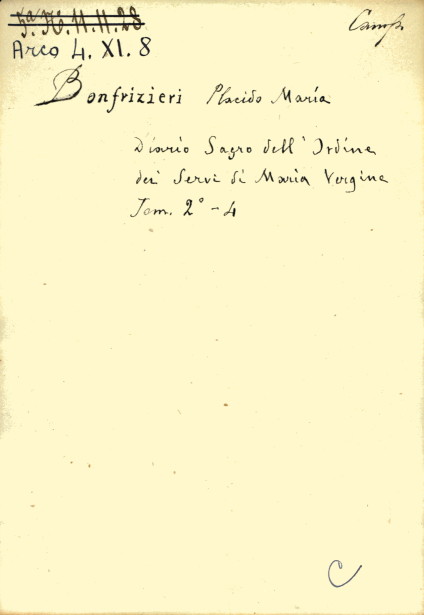 Camp.
Arco 4. XI. 8
Bonfrizieri Placido Maria
Diario Sagro dell' Ordine
dei Servi di Maria Vergine
Tom. 2° - 4
C